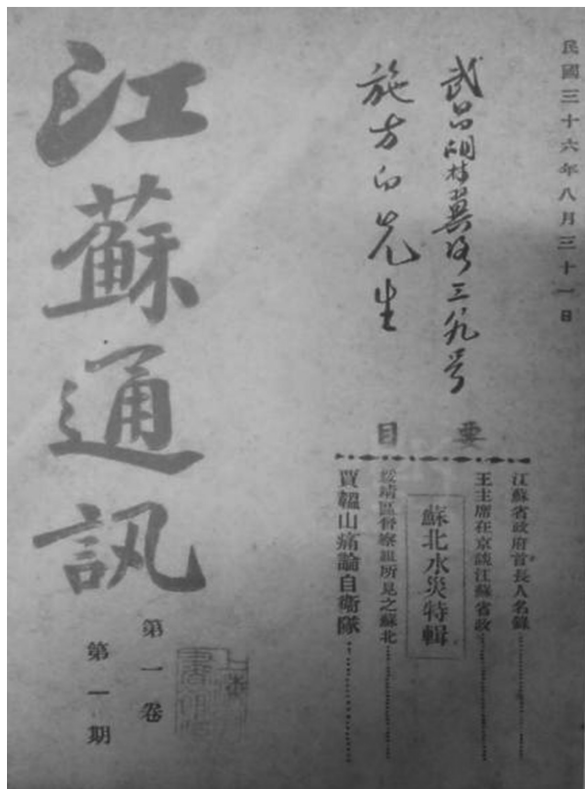 民國三十六年八月三十一日
施方白先生
要目
江蘇省政府首長人名錄
王主席在京談江蘇省政
蘇北水災特輯
綏靖區督察組所見之蘇北
賈韞山痛論自衛隊
江蘇通訊
第一卷
第一期